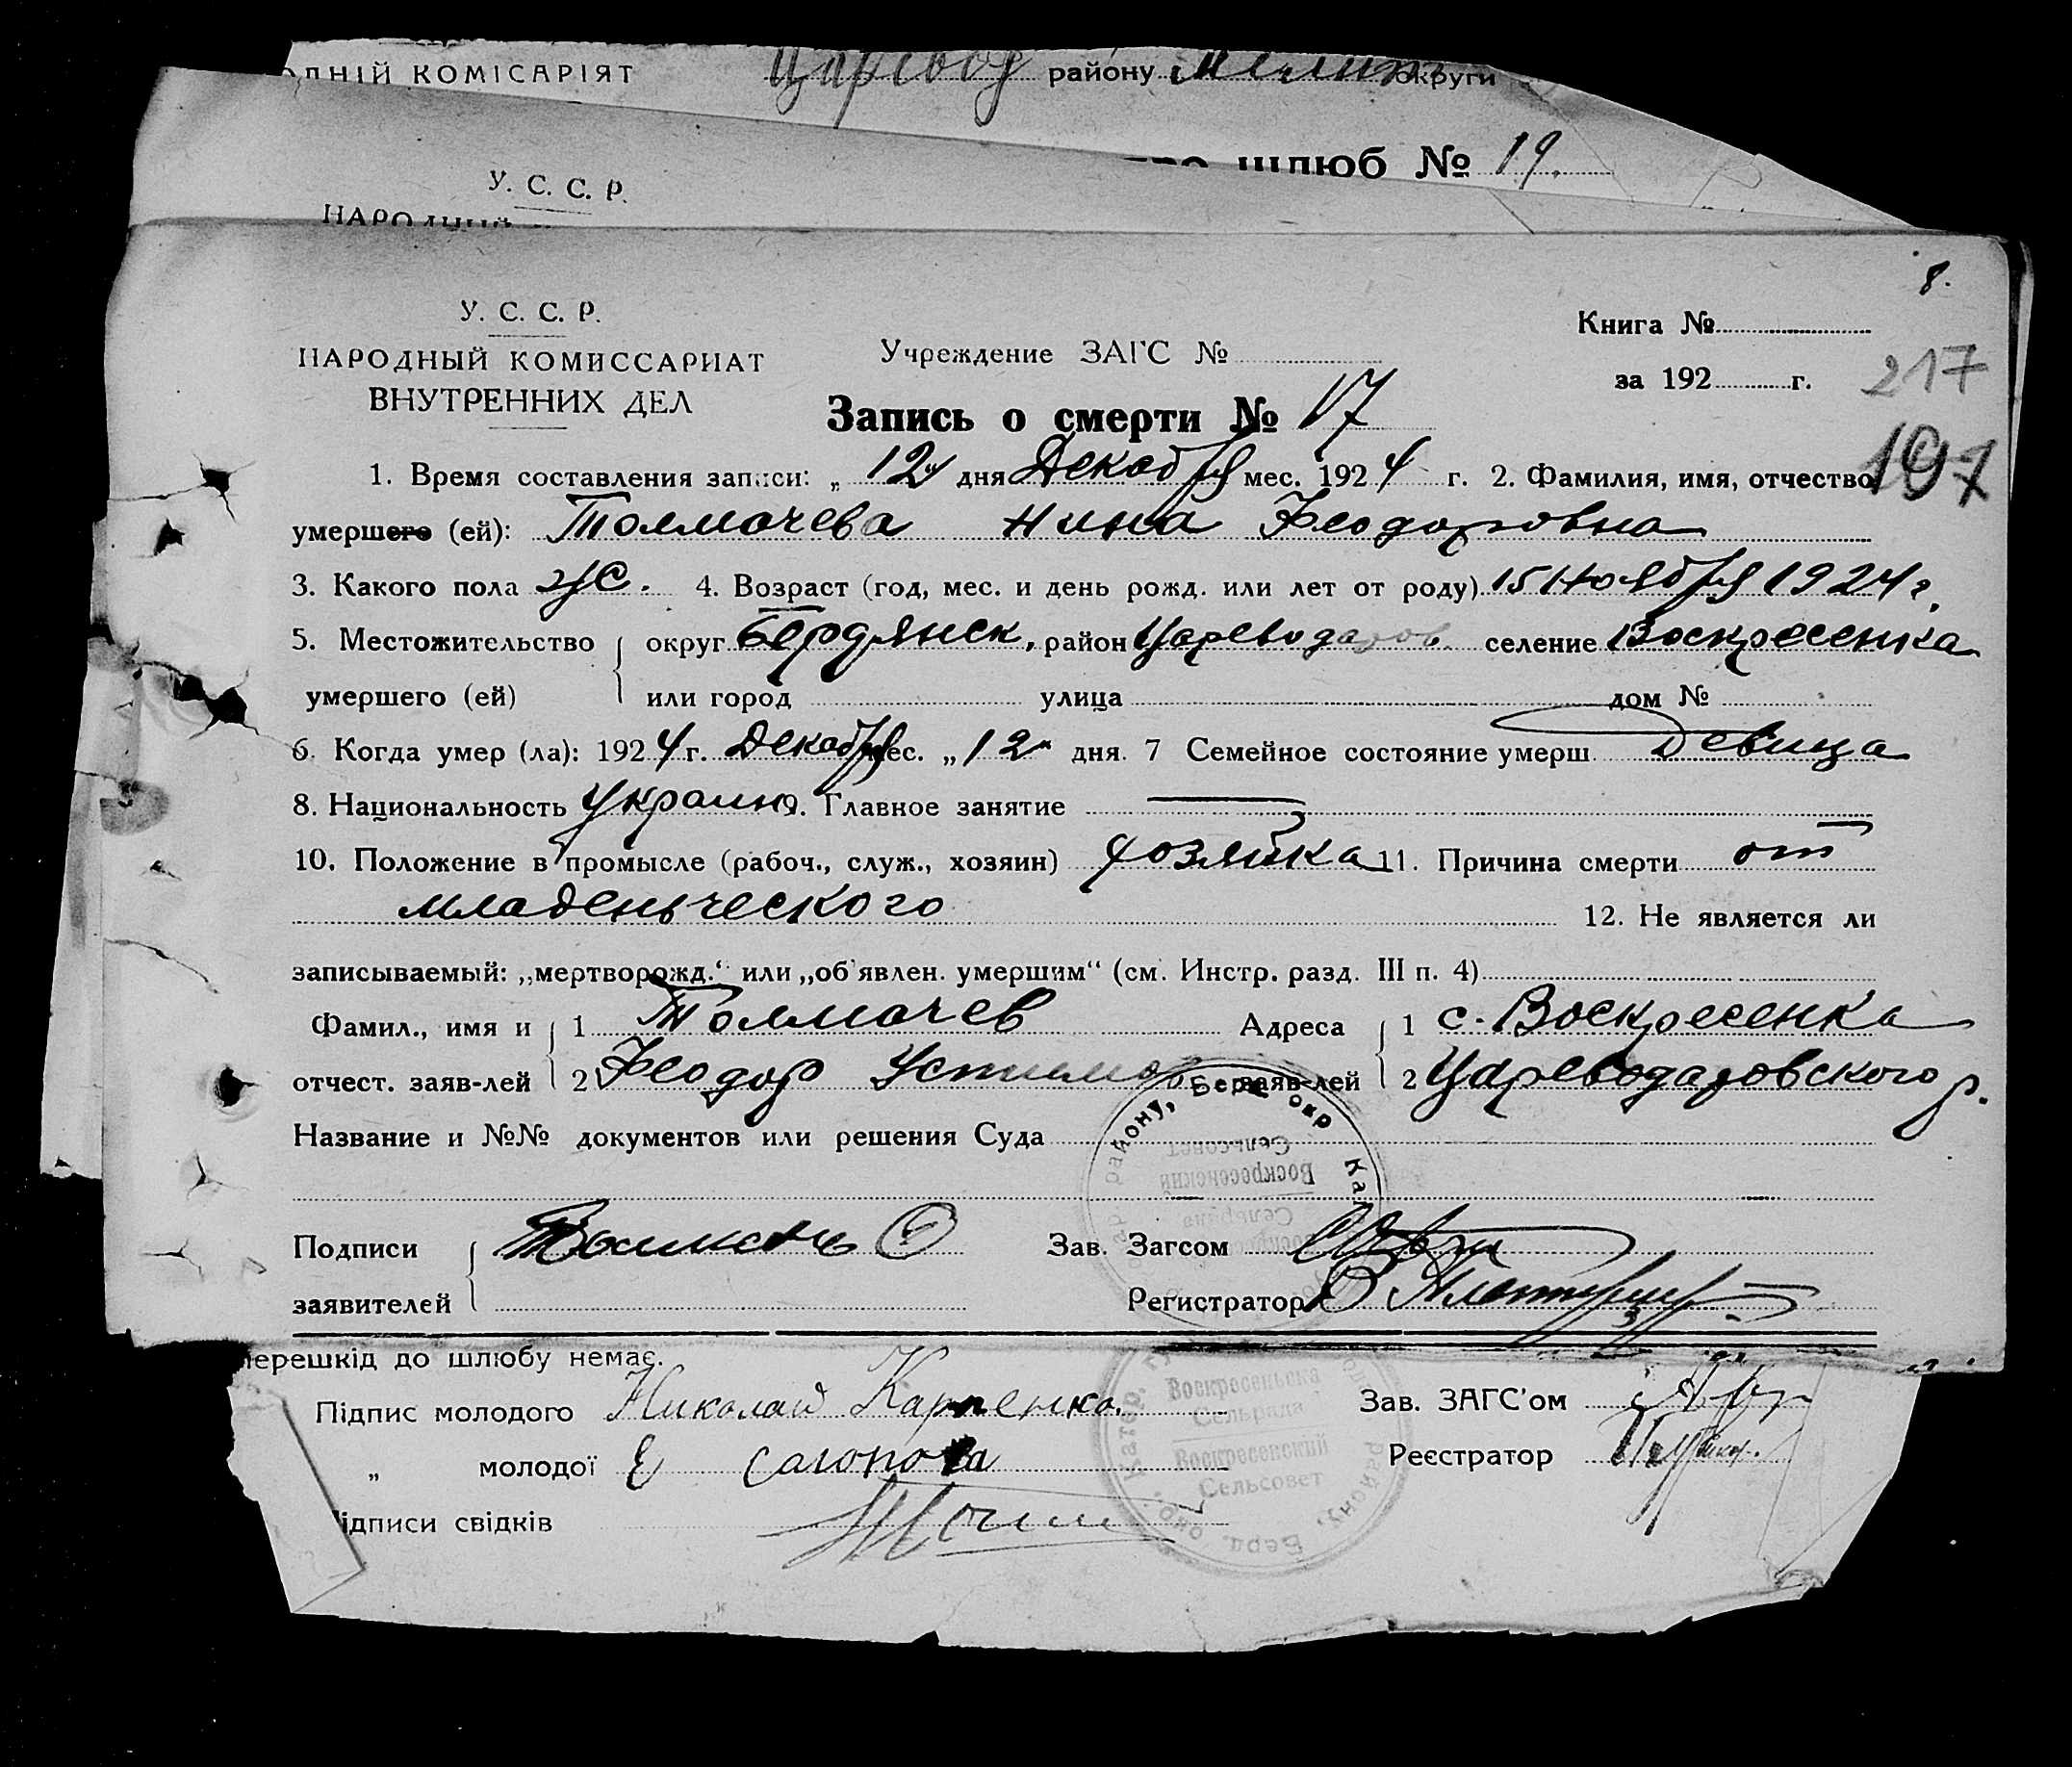 КОМІСАРІЯТ Царевод району округи
шлюб № 19.
У. С. С. Р.
8.
У. С. С. Р.
Книга №
НАРОДНЫЙ КОМИССАРИАТ
ВНУТРЕННИХ ДЕЛ
Учреждение ЗАГС №
за 192 г.
217
Запись о смерти № 17
197
1. Время составления записи: „ 12 " дня Декабря мес. 1924 г. 2. Фамилия, имя, отчество
умершего (ей): Толмачева Нина Феодоровна
3. Какого пола ж. 4. Возраст (год, мес. и день рожд. или лет от роду) 15 Ноября 1924 г.
5. Местожительство округ Бердянск, район Цареводаров. селение Воскресенка
умершего (ей) или город улица дом №
6. Когда умер (ла): 1924 г. Декабря мес. „ 12 " дня. 7 Семейное состояние умерш. Девица
8. Национальность Украин 9. Главное занятие —
10. Положение в промысле (рабоч., служ., хозяин) хозяйка 11. Причина смерти от
младенческого 12. Не является ли
записываемый: „мертворожд.“ или „об'явлен. умершим“ (см. Инстр. разд. III п. 4)
Фамил., имя и 1 Толмачев Адреса 1 с. Воскресенка
отчест. заяв-лей 2 Феодор заяв-лей 2 Цареводаровского р.
Название и №№ документов или решения Суда
Подписи Зав. Загсом
заявителей Регистратор
перешкід до шлюбу немає.
Підпис молодого Николай Карпенко. Зав. ЗАГС'ом
„ молодої Е Реєстратор
Підписи свідків
Воскресенська
Сельрада
Воскресенский
Сельсовет